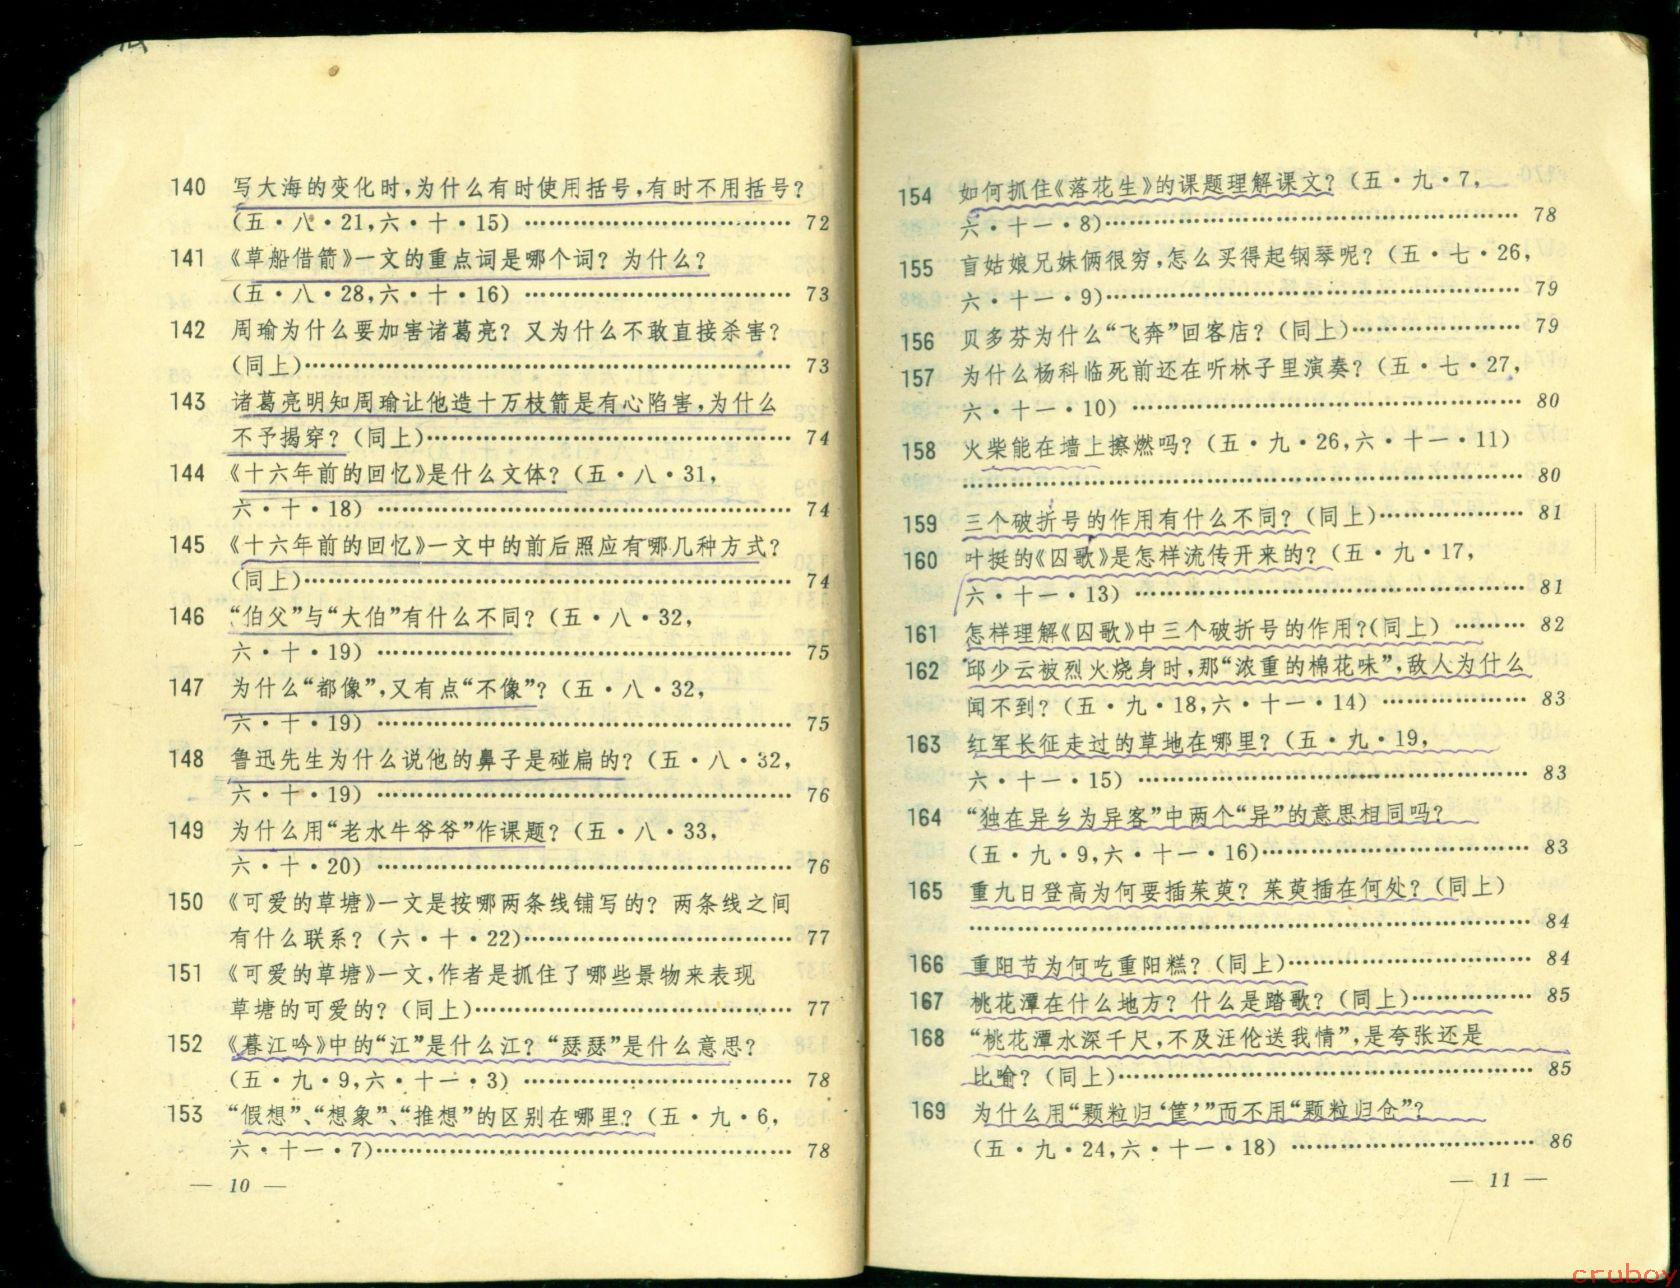 140 写大海的变化时，为什么有时使用括号，有时不用括号？
（五·八·21，六·十·15）………………………… 72
141 《草船借箭》一文的重点词是哪个词？为什么？
（五·八·28，六·十·16）………………………… 73
142 周瑜为什么要加害诸葛亮？又为什么不敢直接杀害？
（同上）……………………………………………… 73
143 诸葛亮明知周瑜让他造十万枝箭是有心陷害，为什么
不予揭穿？（同上）………………………………… 74
144 《十六年前的回忆》是什么文体？（五·八·31，
六·十·18）………………………………………… 74
145 《十六年前的回忆》一文中的前后照应有哪几种方式？
（同上）……………………………………………… 74
146 “伯父”与“大伯”有什么不同？（五·八·32，
六·十·19）………………………………………… 75
147 为什么“都像”，又有点“不像”？（五·八·32，
六·十·19）………………………………………… 75
148 鲁迅先生为什么说他的鼻子是碰扁的？（五·八·32，
六·十·19）………………………………………… 76
149 为什么用“老水牛爷爷”作课题？（五·八·33，
六·十·20）………………………………………… 76
150 《可爱的草塘》一文是按哪两条线铺写的？两条线之间
有什么联系？（六·十·22）……………………… 77
151 《可爱的草塘》一文，作者是抓住了哪些景物来表现
草塘的可爱的？（同上）…………………………… 77
152 《暮江吟》中的“江”是什么江？“瑟瑟”是什么意思？
（五·九·9，六·十一·3）………………………… 78
153 “假想”、“想象”、“推想”的区别在哪里？（五·九·6，
六·十一·7）………………………………………… 78
— 10 —
154 如何抓住《落花生》的课题理解课文？（五·九·7，
六·十一·8）………………………………………… 78
155 盲姑娘兄妹俩很穷，怎么买得起钢琴呢？（五·七·26，
六·十一·9）………………………………………… 79
156 贝多芬为什么“飞奔”回客店？（同上）………………… 79
157 为什么杨科临死前还在听林子里演奏？（五·七·27，
六·十一·10）……………………………………… 80
158 火柴能在墙上擦燃吗？（五·九·26，六·十一·11）
……………………………………………………… 80
159 三个破折号的作用有什么不同？（同上）……………… 81
160 叶挺的《囚歌》是怎样流传开来的？（五·九·17，
六·十一·13）……………………………………… 81
161 怎样理解《囚歌》中三个破折号的作用？（同上）……… 82
162 邱少云被烈火烧身时，那“浓重的棉花味”，敌人为什么
闻不到？（五·九·18，六·十一·14）……………… 83
163 红军长征走过的草地在哪里？（五·九·19，
六·十一·15）……………………………………… 83
164 “独在异乡为异客”中两个“异”的意思相同吗？
（五·九·9，六·十一·16）………………………… 83
165 重九日登高为何要插茱萸？茱萸插在何处？（同上）
……………………………………………………… 84
166 重阳节为何吃重阳糕？（同上）………………………… 84
167 桃花潭在什么地方？什么是踏歌？（同上）…………… 85
168 “桃花潭水深千尺，不及汪伦送我情”，是夸张还是
比喻？（同上）……………………………………… 85
169 为什么用“颗粒归‘筐’”而不用“颗粒归仓”？
（五·九·24，六·十一·18）……………………… 86
— 11 —
cruboy